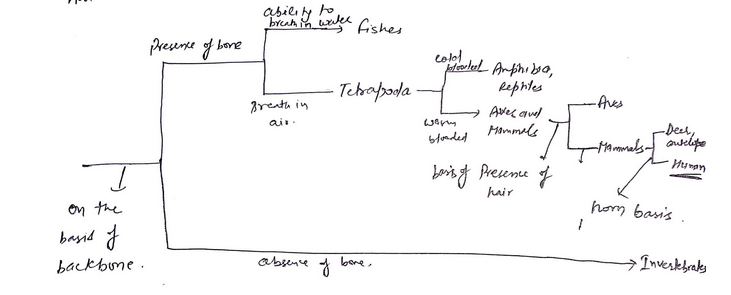 ability to
breath in water
fishes
Presence of bone
cold
blooded
Amphibia,
Reptiles
Tetrapoda
Breath in
air.
warm
blooded
Aves and
Mammals
Aves
Mammals
Deer,
antelope
Human
basis of Presence of
hair
horn basis.
on the
basis of
backbone.
absence of bone.
Invertebrates